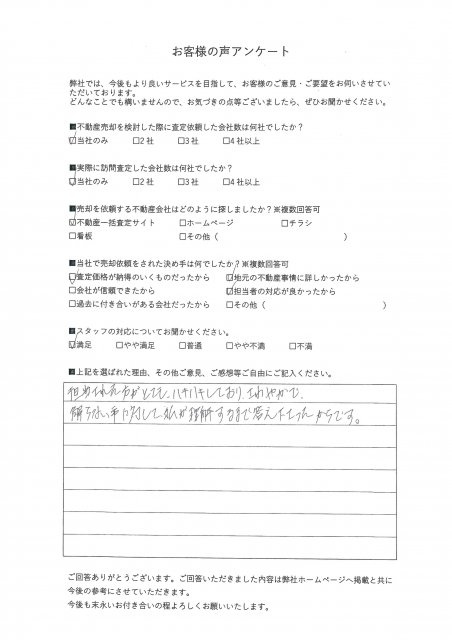 お客様の声アンケート
弊社では、今後もより良いサービスを目指して、お客様のご意見・ご要望をお伺いさせてい
ただいております。
どんなことでも構いませんので、お気づきの点等ございましたら、ぜひお聞かせください。
■不動産売却を検討した際に査定依頼した会社数は何社でしたか？
☑当社のみ □2社 □3社 □4社以上
■実際に訪問査定した会社数は何社でしたか？
☑当社のみ □2社 □3社 □4社以上
■売却を依頼する不動産会社はどのように探しましたか？※複数回答可
☑不動産一括査定サイト □ホームページ □チラシ
□看板 □その他（ ）
■当社で売却依頼をされた決め手は何でしたか？※複数回答可
☑査定価格が納得のいくものだったから ☑地元の不動産事情に詳しかったから
□会社が信頼できたから ☑担当者の対応が良かったから
□過去に付き合いがある会社だったから □その他（ ）
■スタッフの対応についてお聞かせください。
☑満足 □やや満足 □普通 □やや不満 □不満
■上記を選ばれた理由、その他ご意見、ご感想等ご自由にご記入ください。
担当された方がとてもハキハキしており、さわやかで、
解らない事に対して私が理解するまで答えて下さったからです。
ご回答ありがとうございます。ご回答いただきました内容は弊社ホームページへ掲載と共に
今後の参考にさせていただきます。
今後も末永いお付き合いの程よろしくお願いいたします。